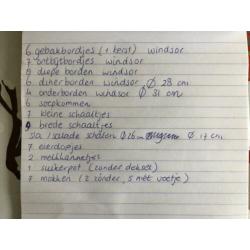 6 gebakbordjes (1 kerst) windsor
7 ontbijtbordjes windsor
8 diepe borden windsor
6 diner borden windsor Ø 28 cm
4 onderborden windsor Ø 31 cm
6 soepkommen
7 kleine schaaltjes
brede schaaltjes
salade schalen Ø 26 cm Ø 17 cm
7 eierdopjes
2 melkkannetjes
1 suikerpot (zonder deksel)
7 mokken (2 zonder, 5 mét voetje)